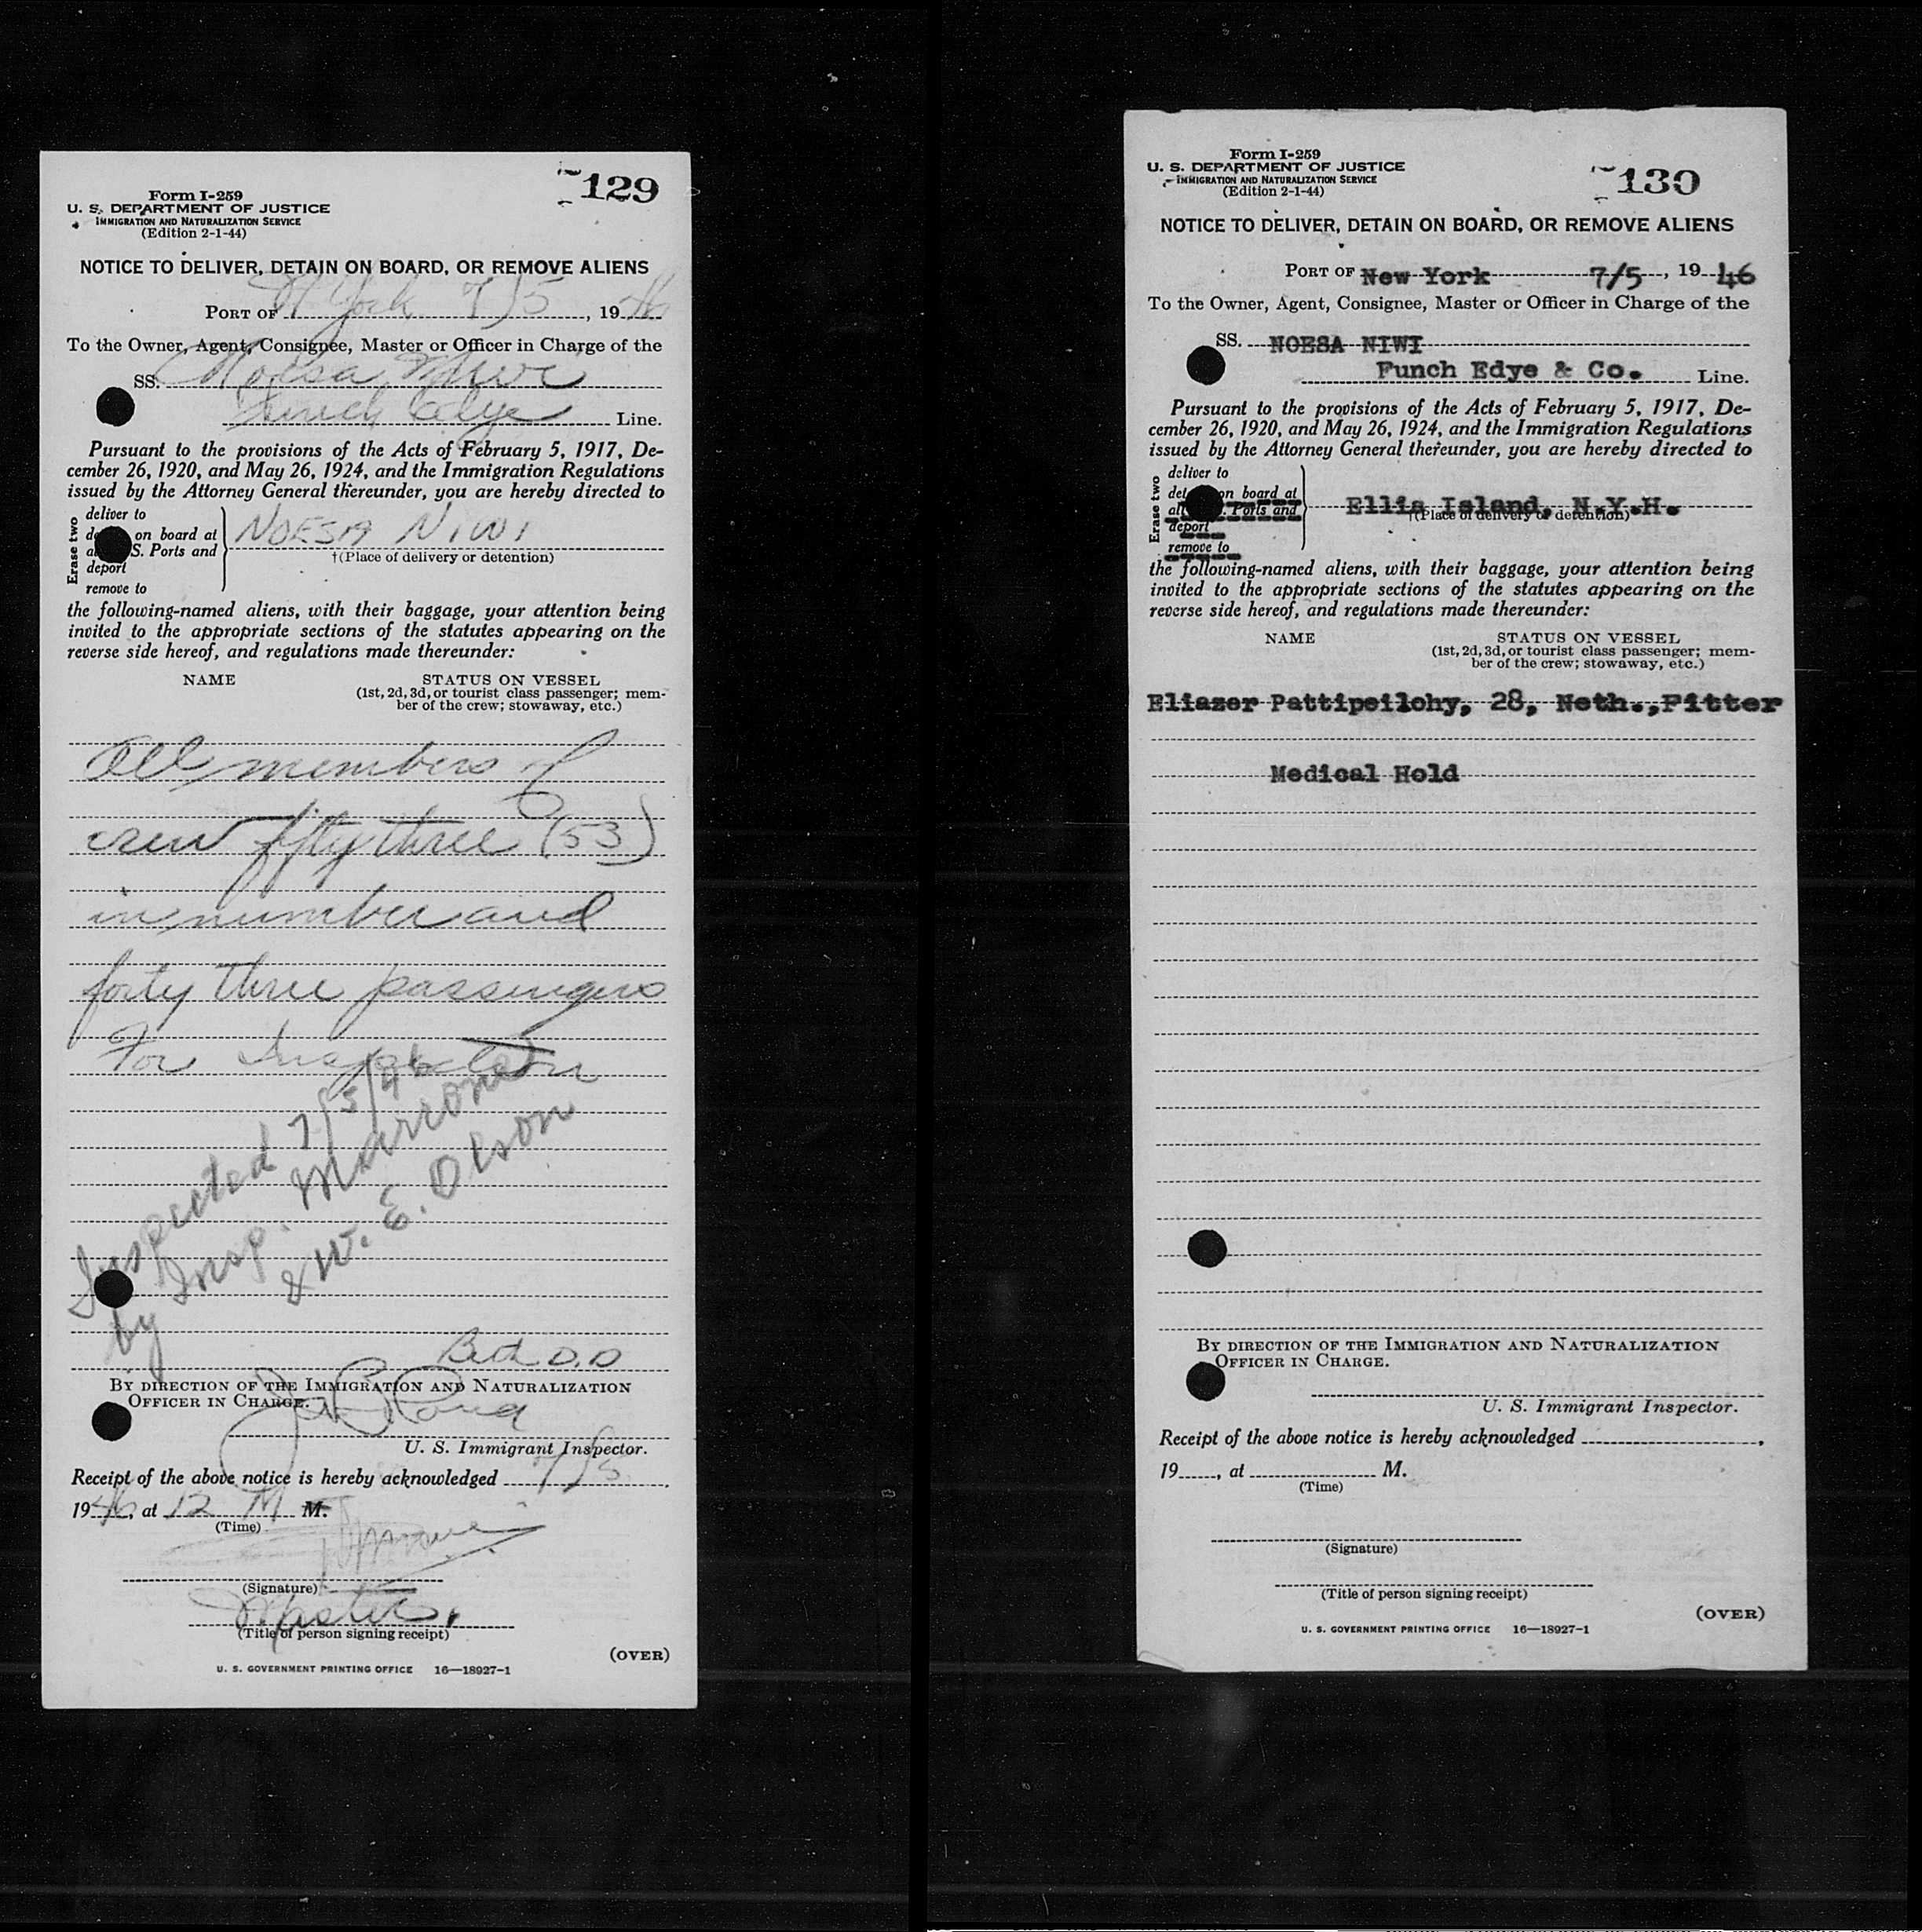 129
Form I-259
U. S. DEPARTMENT OF JUSTICE
IMMIGRATION AND NATURALIZATION SERVICE
(Edition 2-1-44)
NOTICE TO DELIVER, DETAIN ON BOARD, OR REMOVE ALIENS
PORT OF N York 7/5, 19 46
To the Owner, Agent, Consignee, Master or Officer in Charge of the
SS. Noesa Niwi
Funch Edye Line.
Pursuant to the provisions of the Acts of February 5, 1917, De-
cember 26, 1920, and May 26, 1924, and the Immigration Regulations
issued by the Attorney General thereunder, you are hereby directed to
Erase two
deliver to
on board at
S. Ports and
deport
remove to
NOESA NIWI
†(Place of delivery or detention)
the following-named aliens, with their baggage, your attention being
invited to the appropriate sections of the statutes appearing on the
reverse side hereof, and regulations made thereunder:
NAME STATUS ON VESSEL
(1st, 2d, 3d, or tourist class passenger; mem-
ber of the crew; stowaway, etc.)
All members of
crew fifty three (53)
in number and
forty three passengers
For Inspection
Inspected 7/5/46
by Insp. Marrone
& W. E. Olson
BY DIRECTION OF THE IMMIGRATION AND NATURALIZATION
OFFICER IN CHARGE.
U. S. Immigrant Inspector.
Receipt of the above notice is hereby acknowledged 7/5,
19 46, at 12 M M.
(Time)
(Signature)
Master
(Title of person signing receipt)
(OVER)
U. S. GOVERNMENT PRINTING OFFICE 16—18927-1
130
Form I-259
U. S. DEPARTMENT OF JUSTICE
IMMIGRATION AND NATURALIZATION SERVICE
(Edition 2-1-44)
NOTICE TO DELIVER, DETAIN ON BOARD, OR REMOVE ALIENS
PORT OF New York 7/5, 19 46
To the Owner, Agent, Consignee, Master or Officer in Charge of the
SS. NOESA NIWI
Funch Edye & Co. Line.
Pursuant to the provisions of the Acts of February 5, 1917, De-
cember 26, 1920, and May 26, 1924, and the Immigration Regulations
issued by the Attorney General thereunder, you are hereby directed to
Erase two
deliver to
on board at
Ports and
deport
remove to
Ellis Island, N.Y.H.
†(Place of delivery or detention)
the following-named aliens, with their baggage, your attention being
invited to the appropriate sections of the statutes appearing on the
reverse side hereof, and regulations made thereunder:
NAME STATUS ON VESSEL
(1st, 2d, 3d, or tourist class passenger; mem-
ber of the crew; stowaway, etc.)
Eliazer Pattipeilohy, 28, Neth., Fitter
Medical Hold
BY DIRECTION OF THE IMMIGRATION AND NATURALIZATION
OFFICER IN CHARGE.
U. S. Immigrant Inspector.
Receipt of the above notice is hereby acknowledged ,
19 , at M.
(Time)
(Signature)
(Title of person signing receipt)
(OVER)
U. S. GOVERNMENT PRINTING OFFICE 16—18927-1